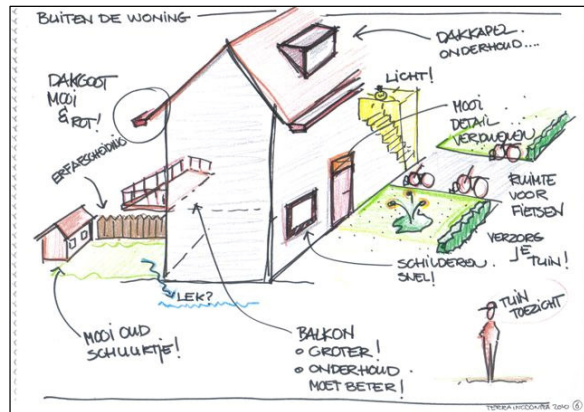 BUITEN DE WONING
DAKKAPEL
ONDERHOUD....
DAKGOOT
MOOI
& ROT!
LICHT!
MOOI
DETAIL
VERDWENEN
ERFAFSCHEIDING
RUIMTE
VOOR
FIETSEN
VERZORG
JE
TUIN!
SCHILDEREN.
SNEL!
LEK?
TUIN
TOEZICHT
MOOI OUD
SCHUURTJE!
BALKON
○ GROTER!
○ ONDERHOUD
MOET BETER!
TERRA INCOGNITA 2010 6